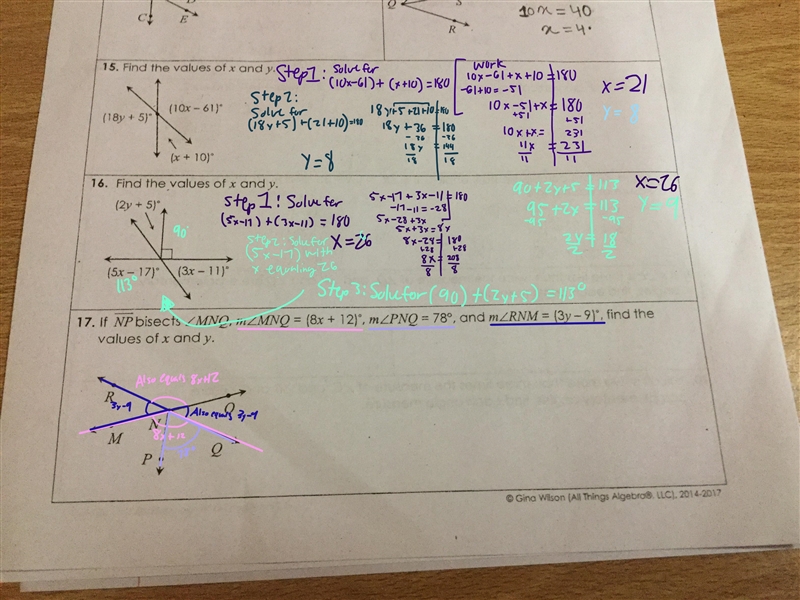 C
E
Q
S
R
10x = 40
x = 4
15. Find the values of x and y.
(18y + 5)°
(10x – 61)°
(x + 10)°
Step 1: Solve for
(10x-61) + (x+10) = 180
Step 2:
Solve for
(18y+5) + (21+10)=180
Y=8
18y+5+21+10=180
18y + 36 = 180
-36 -36
18y = 144
18 18
work
10x-61+x+10=180
-61+10=-51
10x-51+x=180
+51 +51
10x+x= 231
11x = 231
11 11
x=21
y=8
16. Find the values of x and y.
(2y + 5)°
90°
(5x – 17)°
(3x – 11)°
113°
Step 1: Solve for
(5x-17) + (3x-11) = 180
Step 2: Solve for
(5x-17) with
x equaling 26
X=26
5x-17+3x-11=180
-17-11=-28
5x-28+3x
5x+3x=8x
8x-28=180
+28 +28
8x = 208
8 8
90+2y+5=113
95+2y=113
-95 -95
2y = 18
2 2
X=26
Y=9
Step 3: Solve for (90) + (2y+5) = 113°
17. If NP bisects ∠MNQ, m∠MNQ = (8x + 12)°, m∠PNQ = 78°, and m∠RNM = (3y – 9)°, find the
values of x and y.
Also equals 8x+12
R
3y-9
O
Also equals 3y-9
N
M
8x+12
78°
Q
P
© Gina Wilson (All Things Algebra®, LLC), 2014-2017